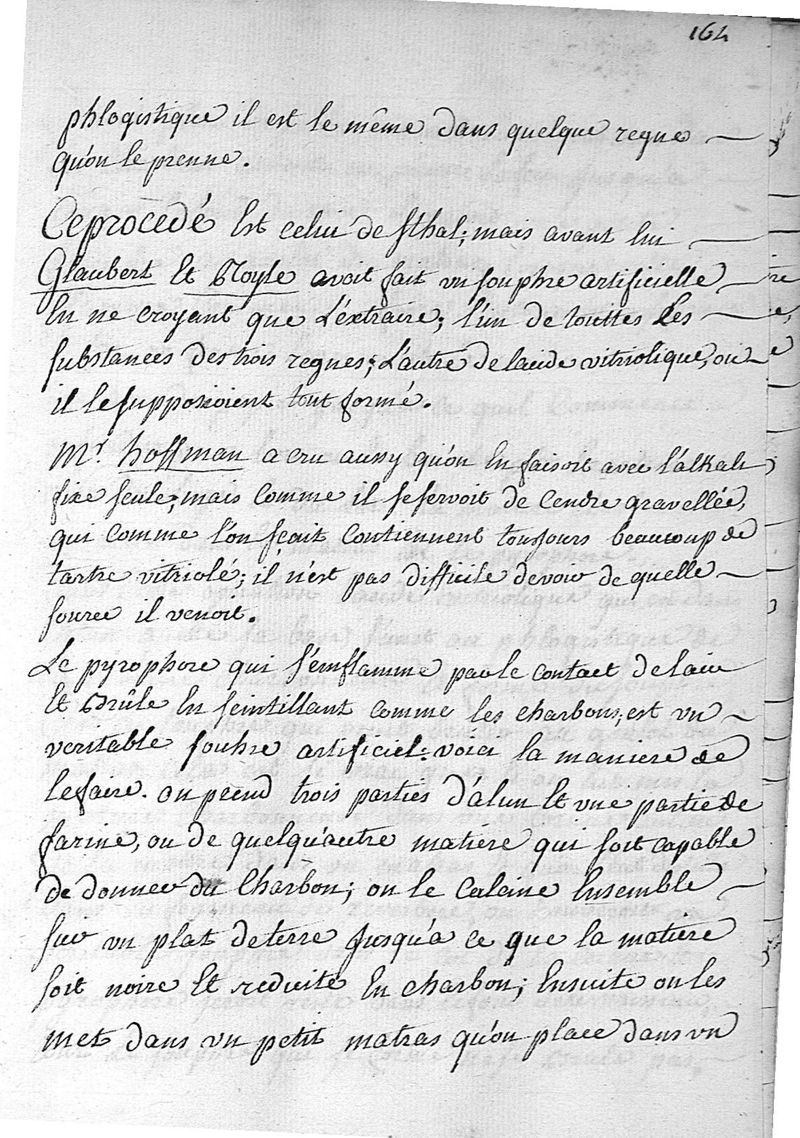 164
phlogistique il est le même dans quelque regne
qu'on le prenne.
Ce procedé Est celui de Sthal; mais avant lui
Glaubert Et Boyle avoit fait un souphre artificielle
En ne croyant que L'extraire; l'un de touttes Les
substances des trois regnes; L'autre de lacide vitriolique, où
il le supposoient tout formé.
Mr. hoffman a cru aussy qu'on En faisoit avec l'alkali
fixe seule; mais comme il se servoit de Cendre gravellée,
qui comme l'on sçait Contiennent tousjours beaucoup de
tartre vitriolé; il n'est pas difficile de voir de quelle
source il venoit.
Le pyrophore qui s'emflamme par le contact de lair
Et Brûle En scintillant comme les charbons, est un
veritable souhre artificiel: voici la maniere de
le faire. on prend trois parties d'alun Et une partie de
farine, ou de quelqu'autre matiere qui soit capable
de donner du Charbon; on le Calcine Ensemble
sur un plat de terre Jusqu'a ce que la matiere
soit noire Et reduite En charbon; Ensuite on les
met dans un petit matras qu'on place dans un